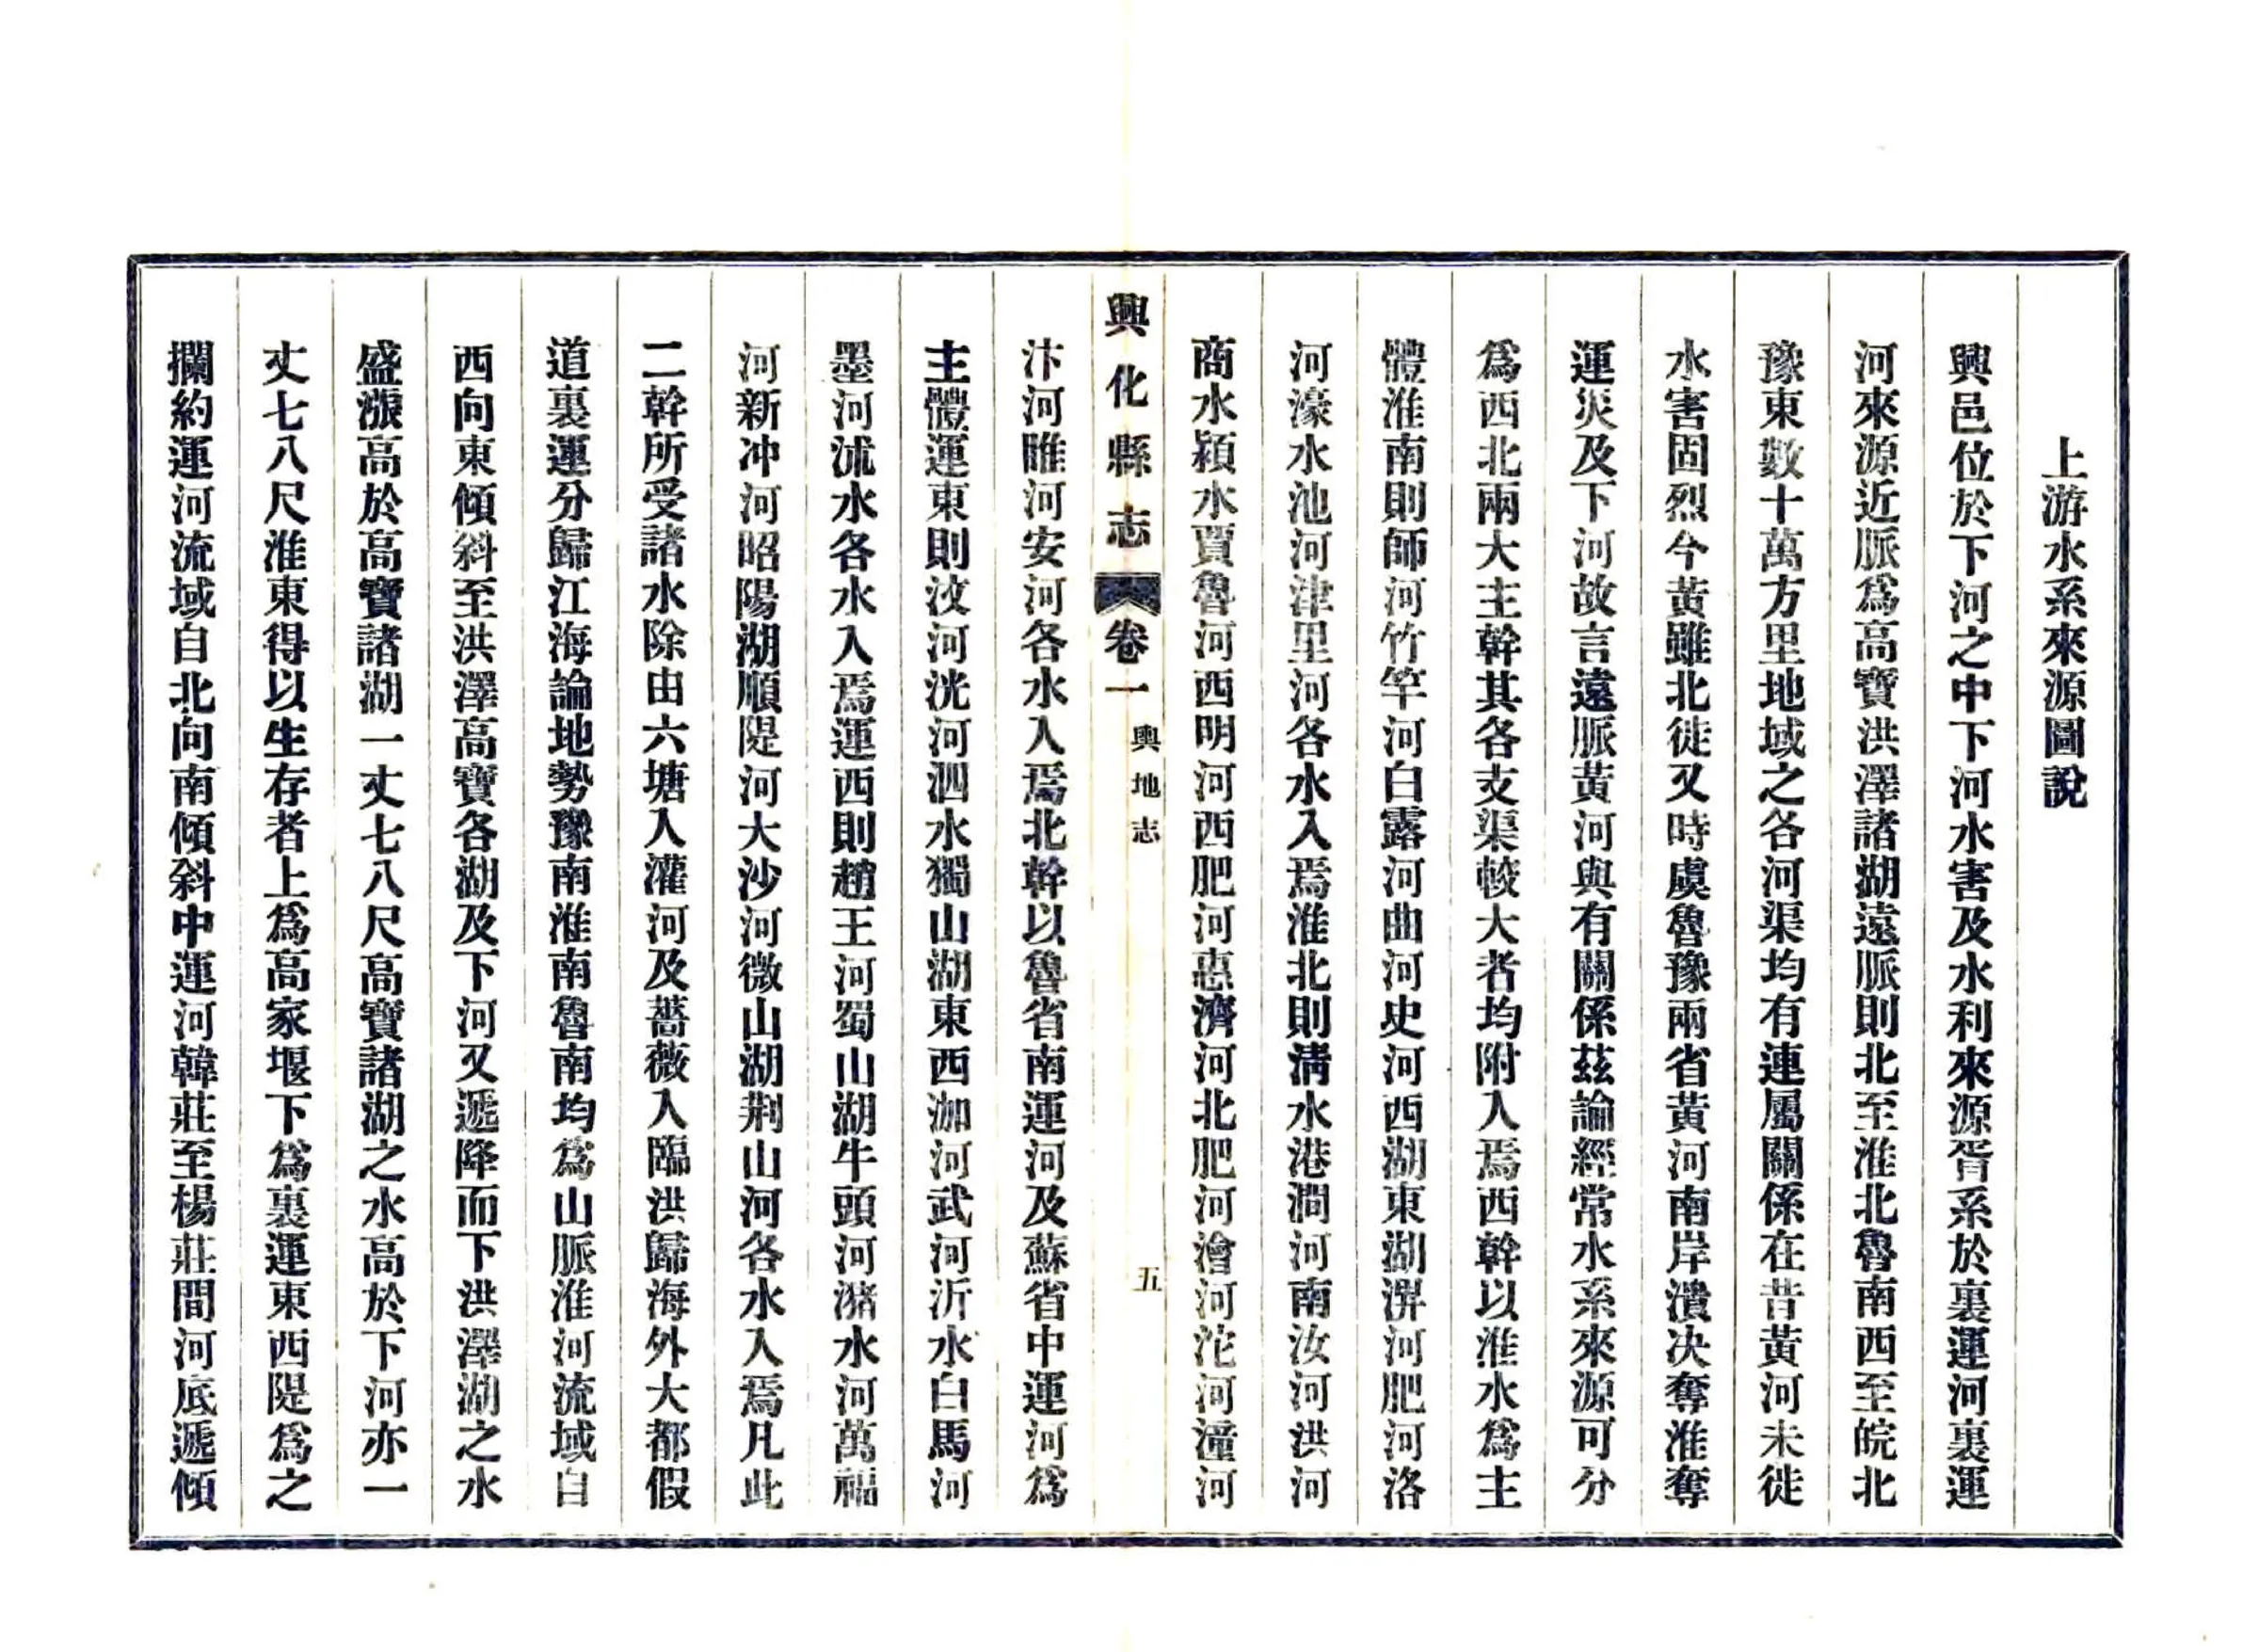 上游水系來源圖說
興邑位於下河之中下河水害及水利來源胥系於裏運河裏運
河來源近脈爲高寶洪澤諸湖遠脈則北至淮北魯南西至皖北
豫東數十萬方里地域之各河渠均有連屬關係在昔黃河未徙
水害固烈今黃雖北徙又時虞魯豫兩省黃河南岸潰决奪淮奪
運災及下河故言遠脈黃河與有關係茲論經常水系來源可分
爲西北兩大主幹其各支渠較大者均附入焉西幹以淮水爲主
體淮南則師河竹竿河白露河曲河史河西湖東湖淠河肥河洛
河濠水池河津里河各水入焉淮北則淸水港澗河南汝河洪河
商水潁水賈魯河西明河西肥河惠濟河北肥河澮河沱河潼河
興化縣志
卷一
輿地志
五
汴河睢河安河各水入焉北幹以魯省南運河及蘇省中運河爲
主體運東則汶河洸河泗水獨山湖東西泇河武河沂水白馬河
墨河沭水各水入焉運西則趙王河蜀山湖牛頭河瀦水河萬福
河新冲河昭陽湖順隄河大沙河微山湖荆山河各水入焉凡此
二幹所受諸水除由六塘入灌河及薔薇入臨洪歸海外大都假
道裏運分歸江海論地勢豫南淮南魯南均爲山脈淮河流域自
西向東傾斜至洪澤高寶各湖及下河又遞降而下洪澤湖之水
盛漲高於高寶諸湖一丈七八尺高寶諸湖之水高於下河亦一
丈七八尺淮東得以生存者上爲高家堰下爲裏運東西隄爲之
攔約運河流域自北向南傾斜中運河韓莊至楊莊間河底遞傾